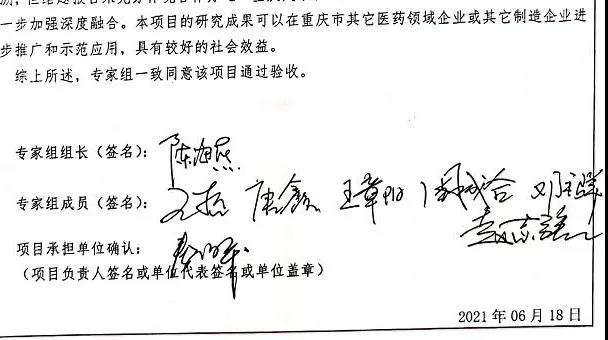 一步加强深度融合。本项目的研究成果可以在重庆市其它医药领域企业或其它制造企业进
步推广和示范应用，具有较好的社会效益。
综上所述，专家组一致同意该项目通过验收。
专家组组长（签名）：
专家组成员（签名）：
项目承担单位确认：
（项目负责人签名或单位代表签名或单位盖章）
2021 年 06 月 18 日